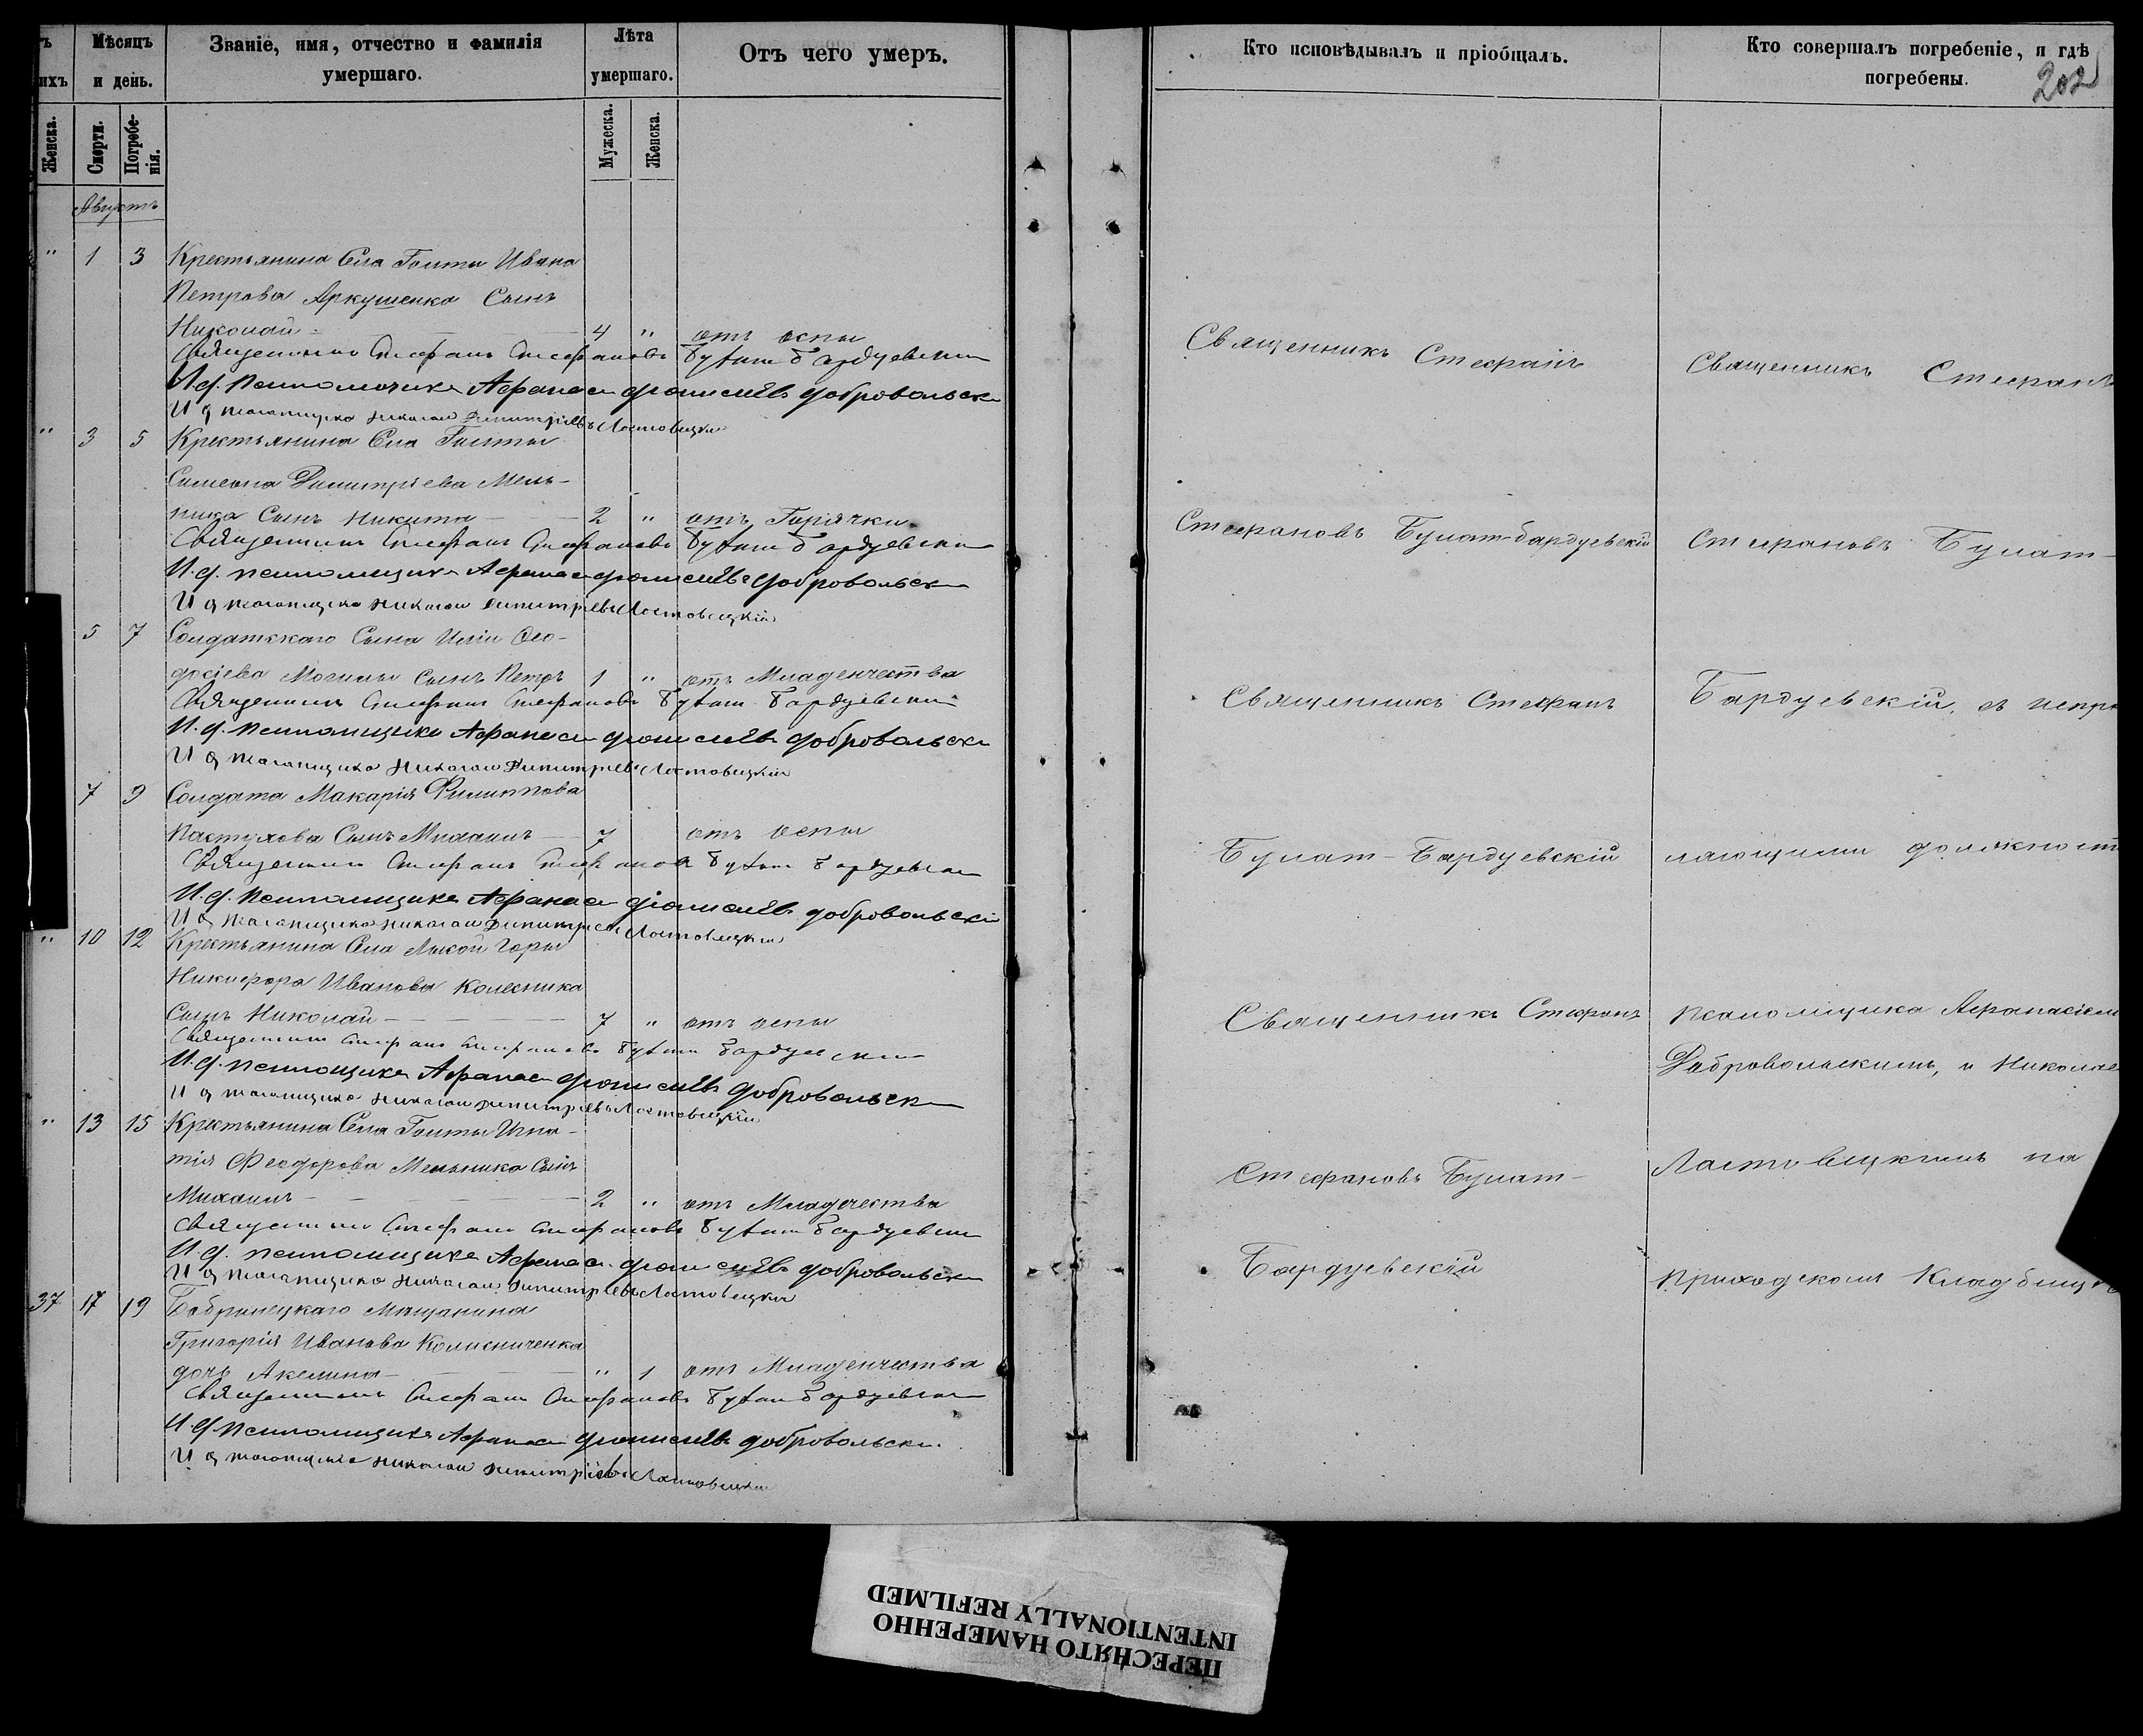 ъ
ихъ
Мѣсяцъ
и день.
Званіе, имя, отчество и фамилія
умершаго.
Лѣта
умершаго.
Отъ чего умеръ.
Кто исповѣдывалъ и пріобщалъ.
Кто совершалъ погребеніе, и гдѣ
погребены.
202
Женска.
Смерти.
Погребе-
нія.
Мужеска.
Женска.
Августъ
" 1 3 Крестьянина Села Голты Ивана
Петрова Аркушенка Сынъ
Николай - 4 " отъ оспы
Священникъ Стефанъ Стефановъ Булат Бардуевскій
И. д. псаломщика Афанасій Діонисіевъ Добровольскій
И д псаломщика Николай Димитріевъ Ластовецкій
" 3 5 Крестьянина Села Голты
Симеона Димитріева Мель-
ника Сынъ Никита - 2 " отъ Горячки
Священникъ Стефанъ Стефановъ Булат Бардуевскій
И. д. псаломщика Афанасій Діонисіевъ Добровольскій
И д псаломщика Николай Димитріевъ Ластовецкій
5 7 Солдатскаго Сына Иліи Ѳео-
досіева Могилы Сынъ Петръ 1 " отъ Младенчества
Священникъ Стефанъ Стефановъ Булат Бардуевскій
И. д. псаломщика Афанасій Діонисіевъ Добровольскій
И д псаломщика Николай Димитріевъ Ластовецкій
7 9 Солдата Макарія Филиппова
Пастухова Сынъ Михаилъ - 7 отъ оспы
Священникъ Стефанъ Стефановъ Булат Бардуевскій
И. д. псаломщика Афанасій Діонисіевъ Добровольскій
И д псаломщика Николай Димитріевъ Ластовецкій
" 10 12 Крестьянина Села Лысой Горы
Никифора Иванова Колесника
Сынъ Николай - 7 " отъ оспы
Священникъ Стефанъ Стефановъ Булат Бардуевскій
И. д. псаломщика Афанасій Діонисіевъ Добровольскій
И д псаломщика Николай Димитріевъ Ластовецкій
" 13 15 Крестьянина Села Голты Игна-
тія Феодорова Мельника Сынъ
Михаилъ - 2 " отъ Младечества
Священникъ Стефанъ Стефановъ Булат Бардуевскій
И. д. псаломщика Афанасій Діонисіевъ Добровольскій
И д псаломщика Николай Димитріевъ Ластовецкій
37 17 19 Бобринецкаго Мещанина
Григорія Иванова Колисниченка
дочь Акелина - " 1 отъ Младенчества
Священникъ Стефанъ Стефановъ Булат Бардуевскій
И. д. псаломщика Афанасій Діонисіевъ Добровольскій
И д псаломщика Николай Димитріевъ Ластовецкій
Священникъ Стефанъ
Стефановъ Булат-Бардуевскій
Священникъ Стефанъ
Булат-Бардуевскій
Священникъ Стефанъ
Стефановъ Булат-
Бардуевскій
Священникъ Стефанъ
Стефановъ Булат-
Бардуевскій, съ испр
ляющими должност
Псаломщика Афанасіем
Добровольскимъ, и Николае
Ластовецкимъ на
приходскомъ Кладбищѣ
ПЕРЕСНЯТО НАМЕРЕННО
INTENTIONALLY REFILMED